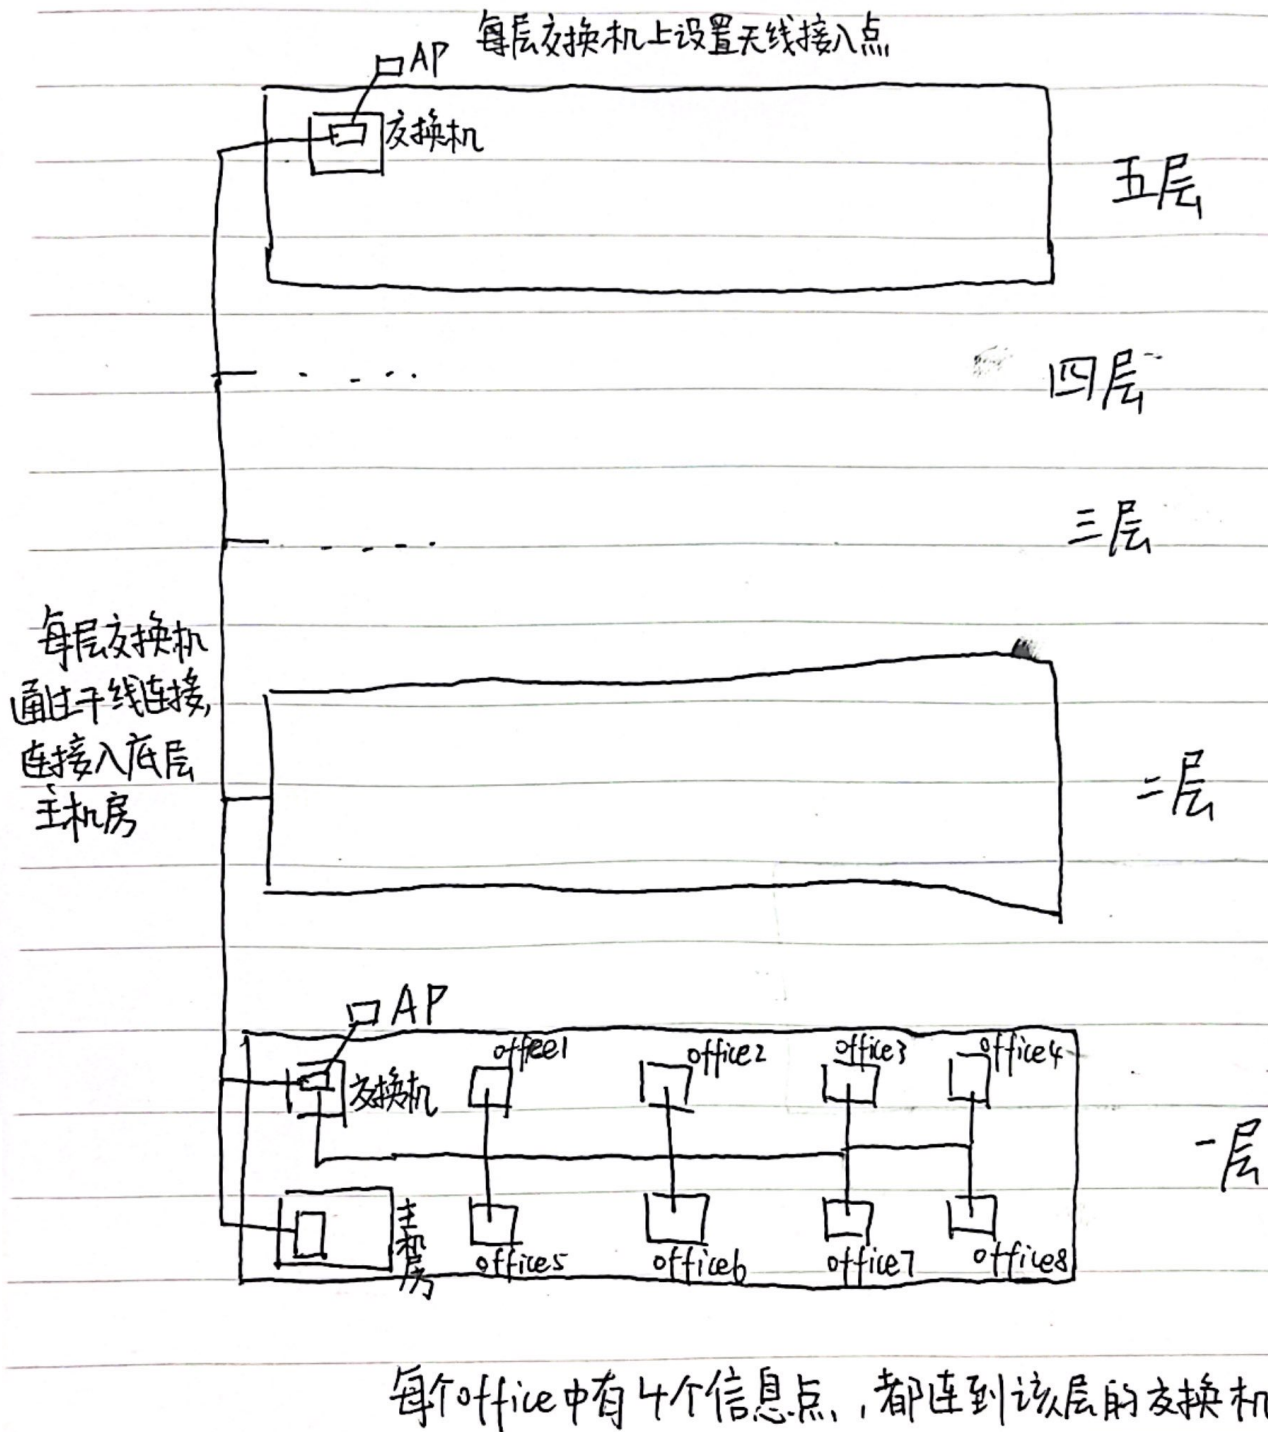 每层交换机上设置无线接入点
AP
交换机
五层
四层
三层
每层交换机
通过干线连接,
连接入底层
主机房
二层
AP
offee1
office2
office3
office4
交换机
一层
主机房
office5
office6
office7
office8
每个office中有4个信息点,都连到该层的交换机